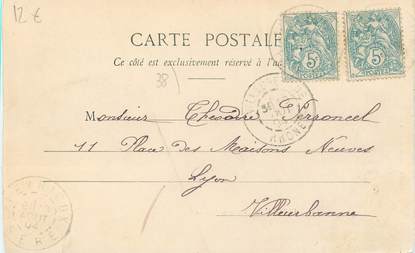 12 €
CARTE POSTALE
Ce côté est exclusivement réservé à l'ad
38
Monsieur Perroncel
11 Place des Maisons Neuves
Lyon
Villeurbanne
5c
5c
RHONE